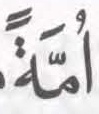 أُمَّةً